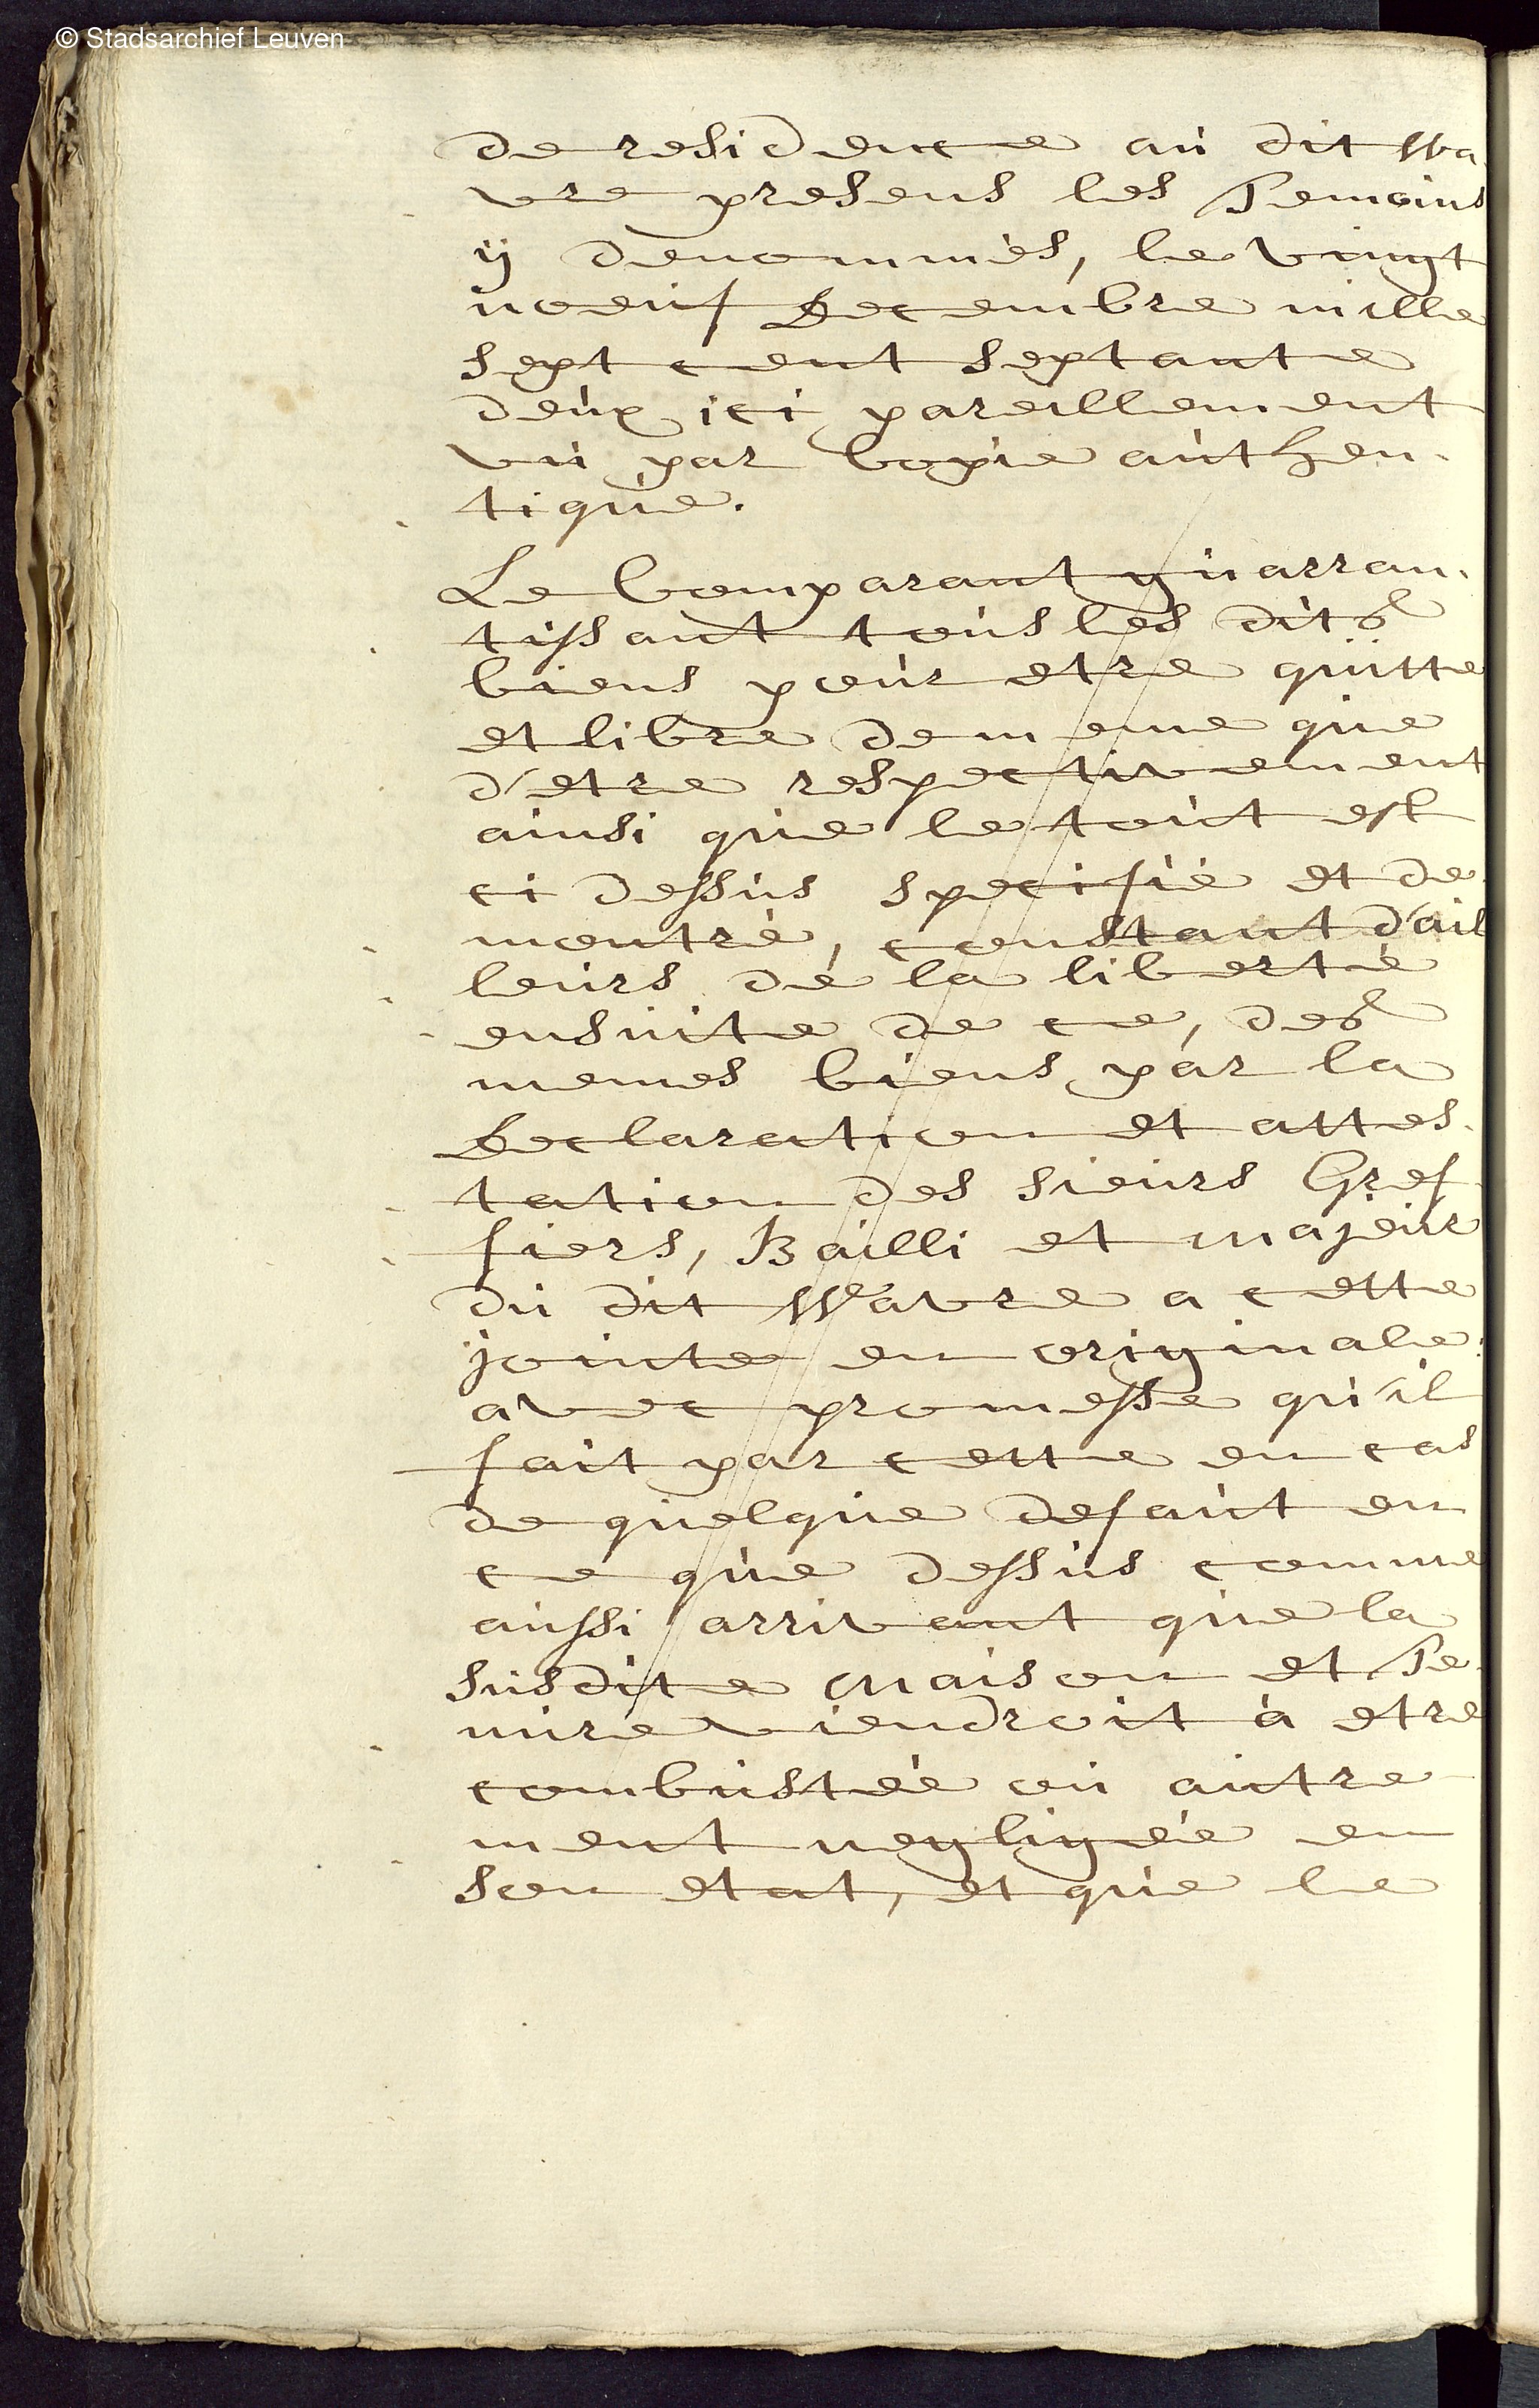 © Stadsarchief Leuven
de residence au dit Wa-
vre presens les Temoins
ÿ denommés, le vingt
noeuf Decembre mille
sept cent septante
deux ici pareillement
vu par Copie authen-
tique.
Le Comparant guarran-
tissant tous les dits
biens pour etre quitte
et libre de meme que
d'etre respectivement
ainsi que le tout est
ci dessus specifié et de-
montré, constant d'ail
leurs de la liberté
ensuite de ce, des
memes biens par la
Declaration et attes-
tation des sieurs Gref
fiers, Bailli et majeur
du dit Wavre a cette
jointe en originale:
avec promesse qu'il
fait par cette en cas
de quelque defaut en
ce que dessus comme
aussi arrivant que la
susdite maison et Te-
nure viendroit à etre
combustée ou autre
ment negligée en
son etat, et que le